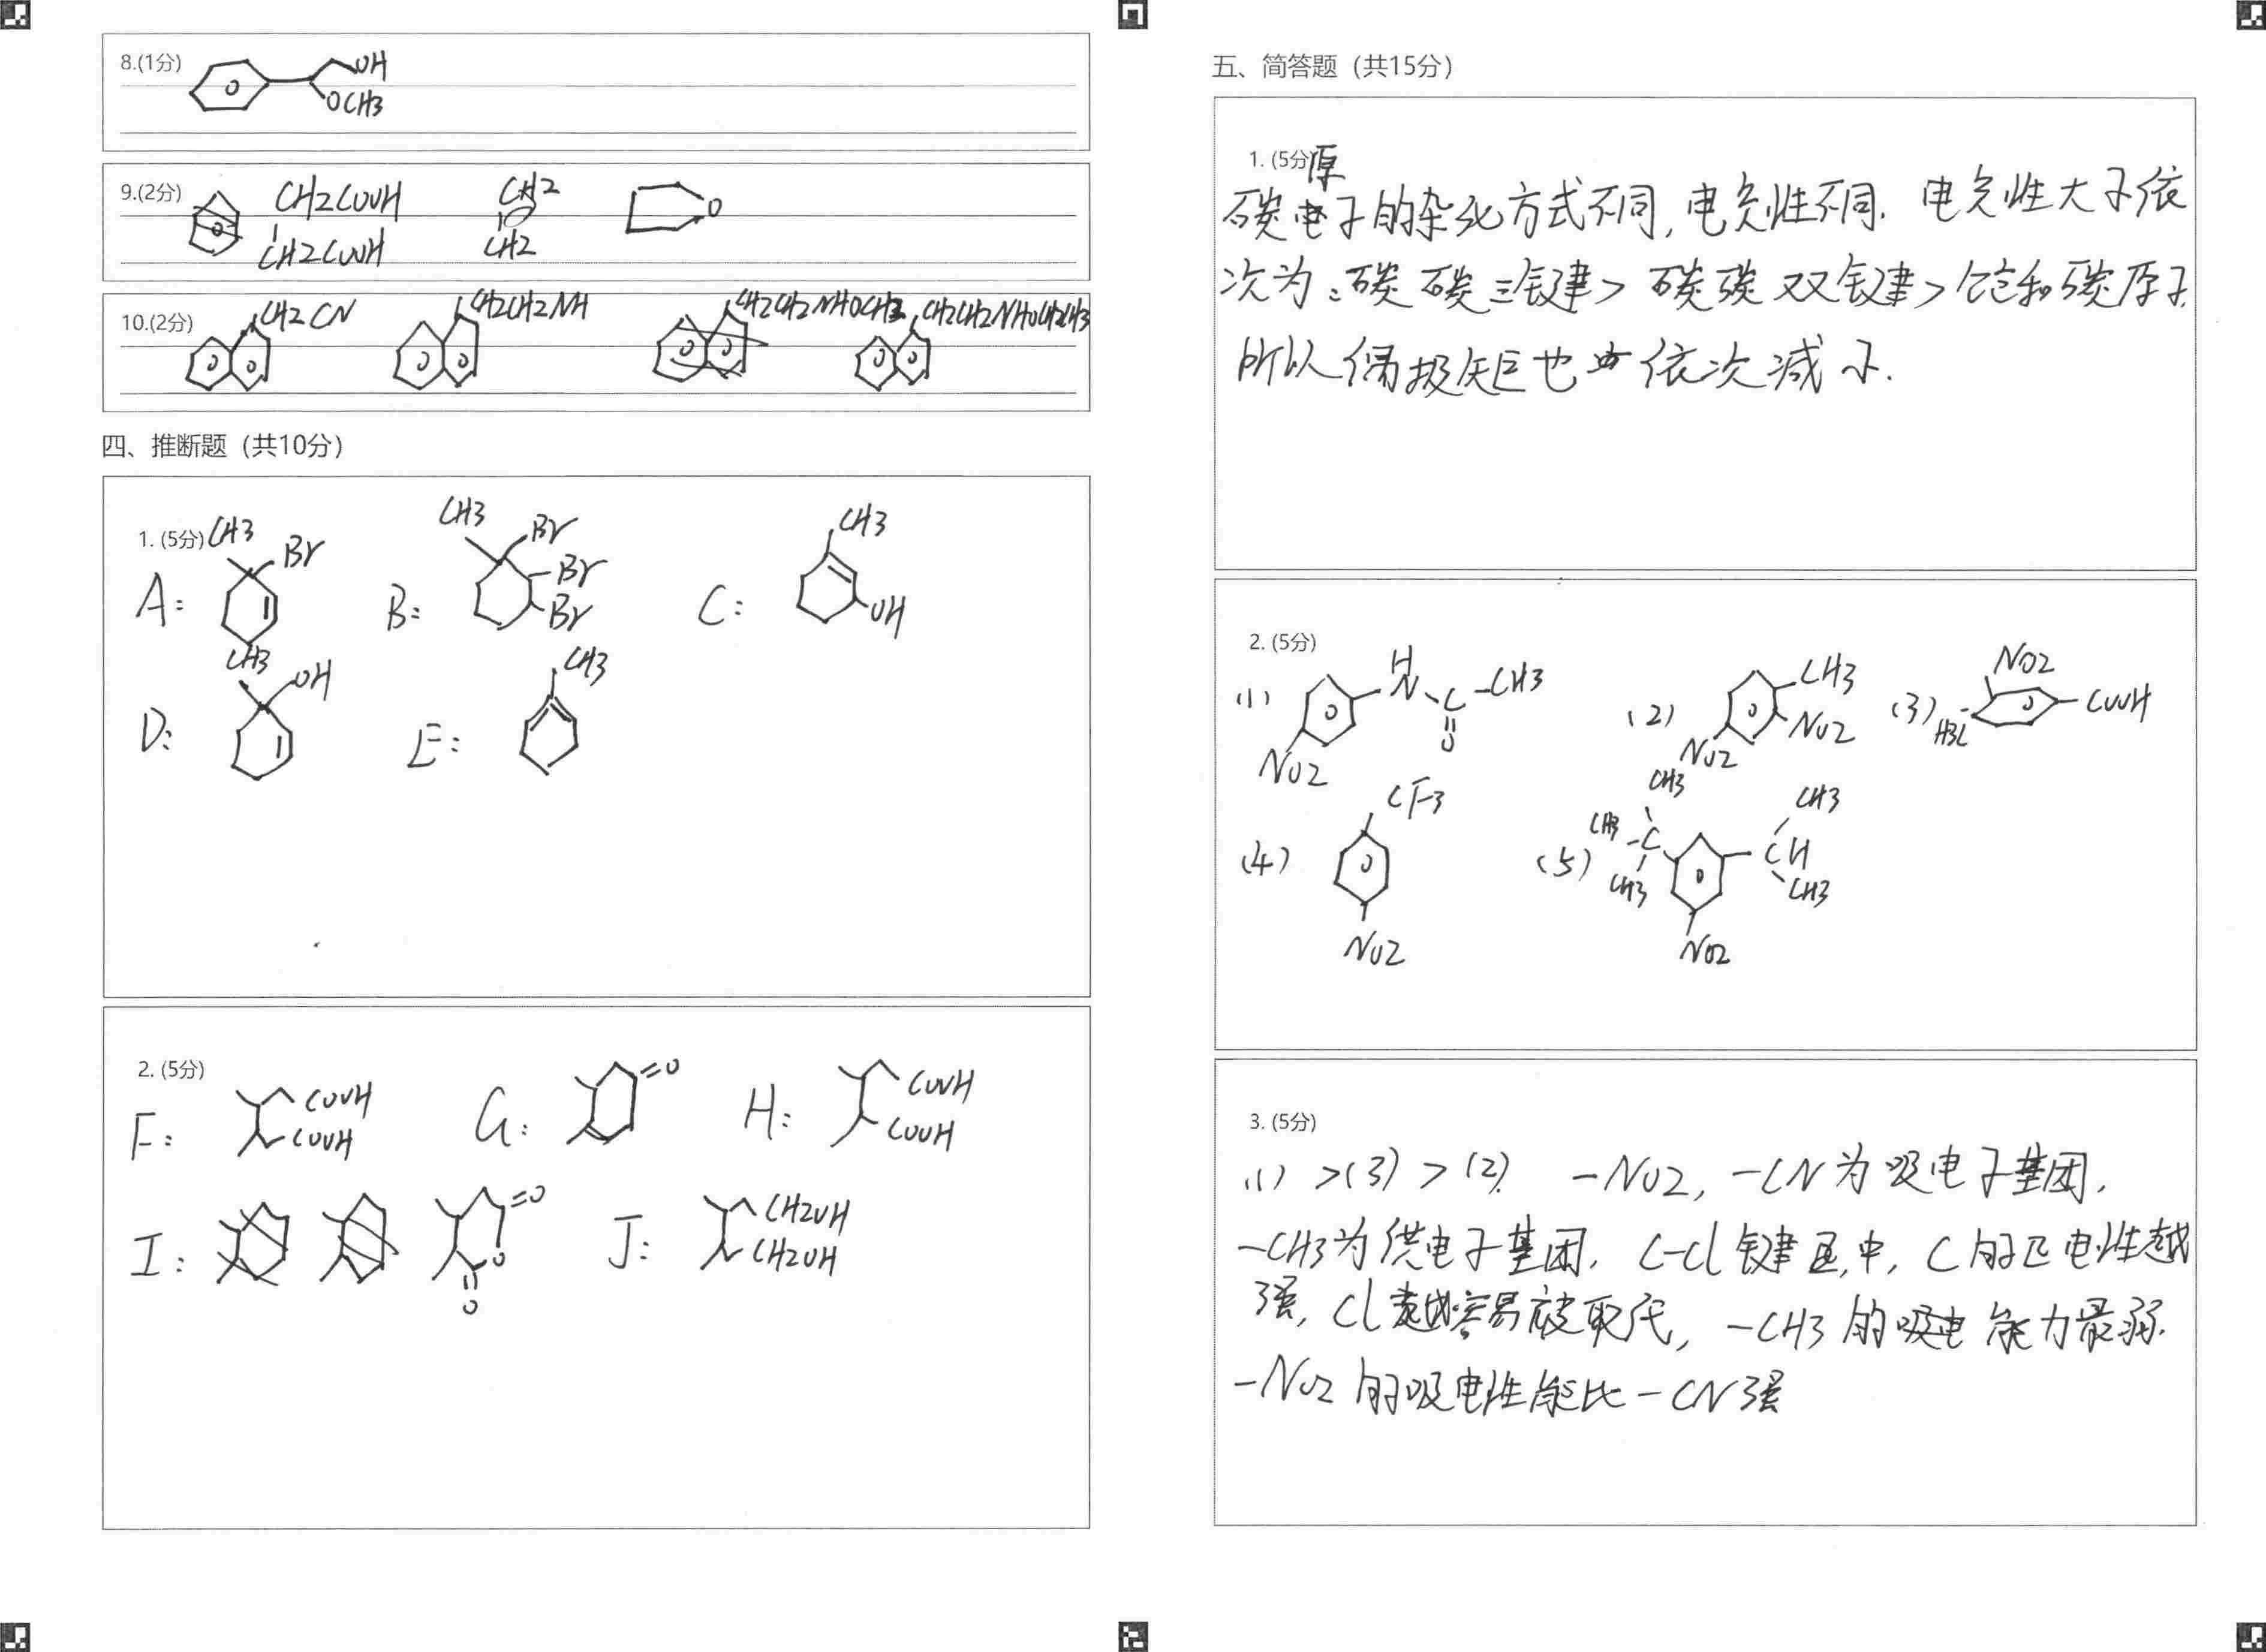 8.(1分)
OH
OCH3
9.(2分)
CH2COOH
CH2COOH
CH2
CH2
O
10.(2分)
CH2CN
CH2CH2NH
CH2CH2NHOCH3
CH2CH2NHOCH2CH3
四、推断题（共10分）
1. (5分)
A: CH3 Br
B: CH3 Br Br Br
C: CH3 OH
D: CH3 OH
E: CH3
2. (5分)
F: COOH COOH
G: =O
H: COOH COOH
I: =O O O
J: CH2OH CH2OH
五、简答题（共15分）
1. (5分)
碳原子的杂化方式不同,电负性不同. 电负性大子依
次为:碳碳三键> 碳碳双键>饱和碳原子.
所以偶极矩也 依次减小.
2. (5分)
(1) H N C CH3 O NO2
(2) CH3 NO2 NO2
(3) NO2 COOH H3C
(4) CF3 NO2
(5) CH3 CH3 C CH3 CH CH3 CH3 NO2
3. (5分)
(1) >(3) > (2). -NO2, -CN为吸电子基团,
-CH3为供电子基团, C-Cl键 中, C的正电性越
强, Cl越容易被取代, -CH3的吸电能力最弱.
-NO2的吸电性能比-CN强